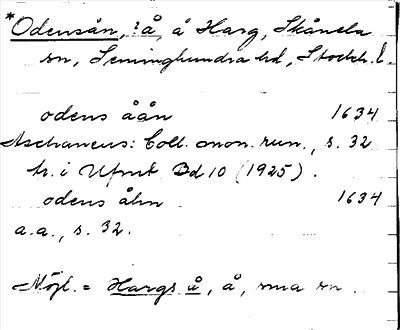 *Odensån, ?å, å Harg, Skånela
sn, Seminghundra hd, Stockh. l.
odens åån 1634
Aschaneus: Coll. mon. run., s. 32
tr. i Ufmt Bd 10 (1925).
odens åhn 1634
a.a., s. 32.
Möjl. = Hargs å, å, sma sn.